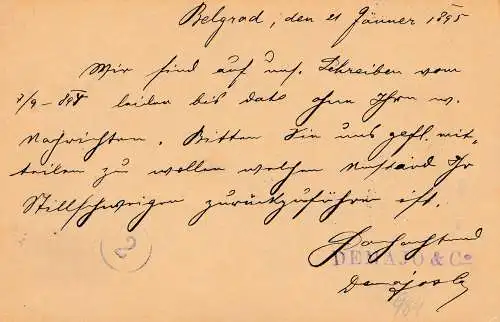 Belgrad, den 21 Jänner 1895
Wir sind auf uns. Schreiben vom
7/9 - 894 leider bis dato ohne Ihre w.
Nachrichten. Bitten Sie uns gefl. mit-
teilen zu wollen welchem Umstand Ihr
Stillschweigen zurückzuführen ist.
Hochachtend
DEMAJO & Co
Demajo & Co
2
984